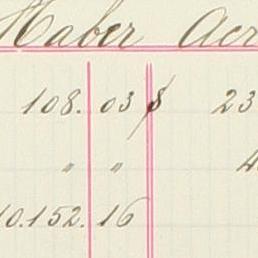 Haber Acr
108. 03 $ 23
" " 4
10.152. 16